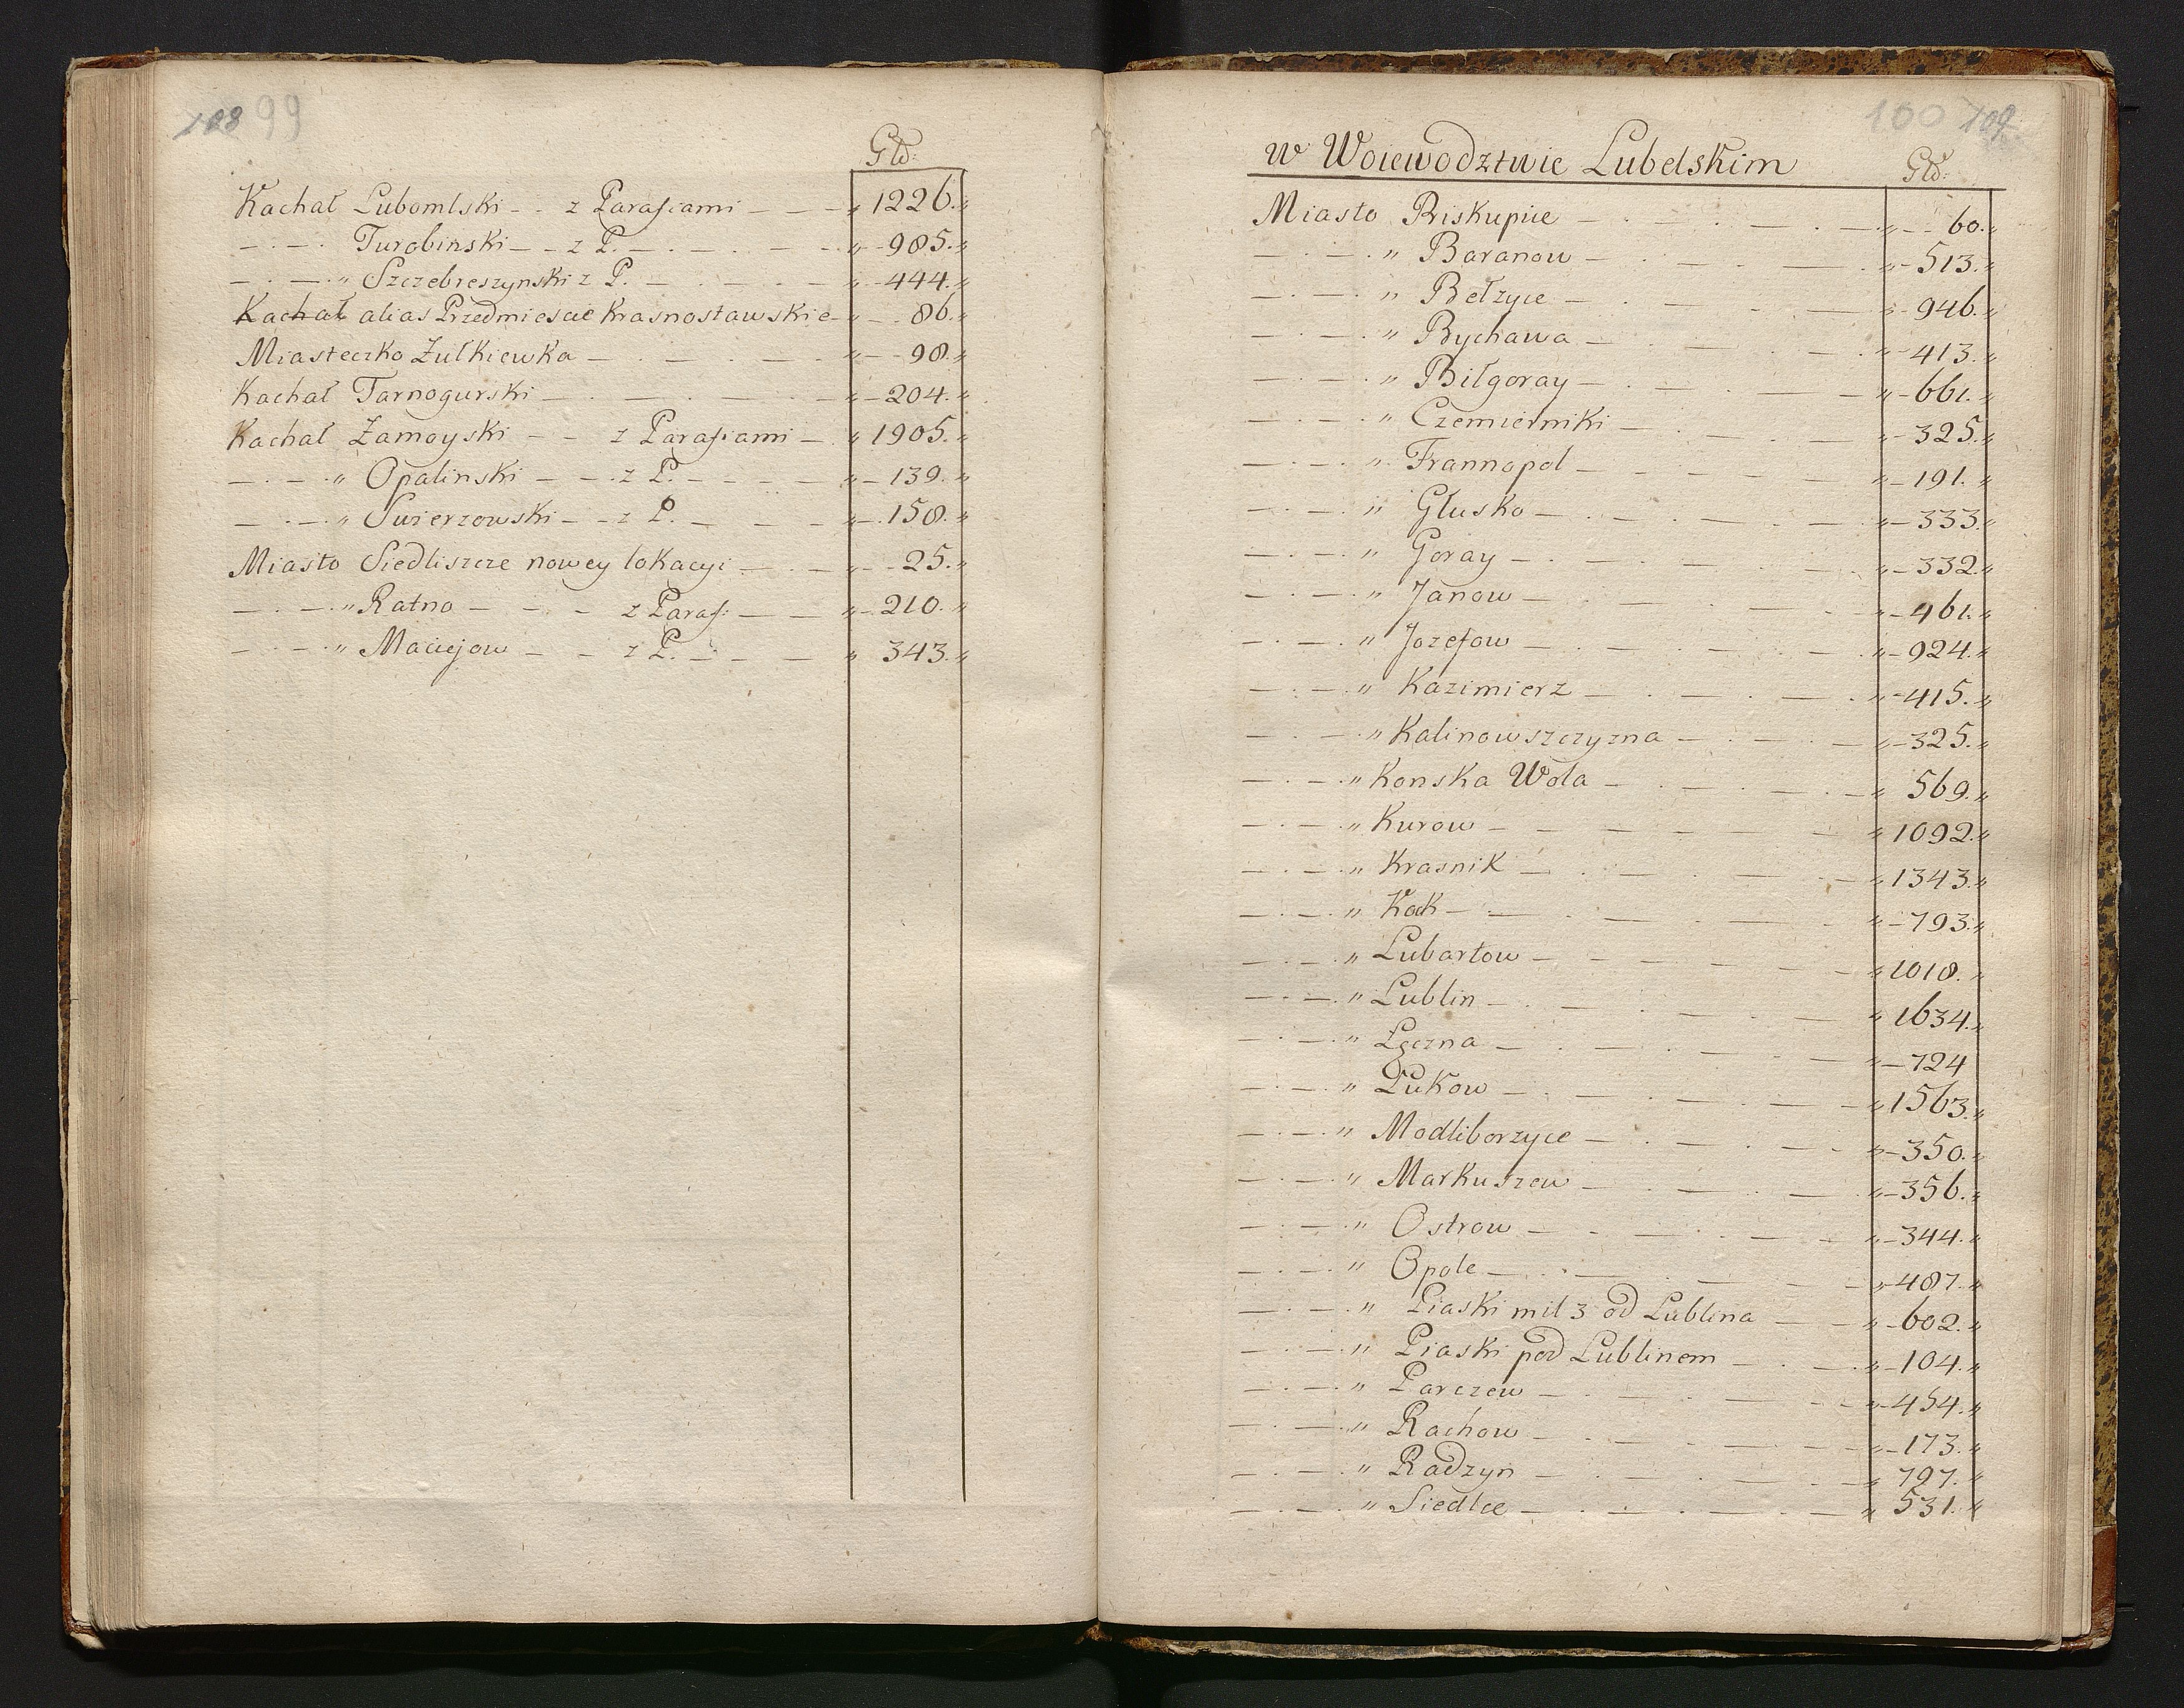 108 99
Głd:
Kachał Lubomlski - - z Parafiami - - - „ 1226. „
- . - . Turobinski - - z P. - . - . - . - „ 985. „
- . - . „ Szczebreszynski z P. - . - . - . - „ 444. „
Kachał alias Przedmiescie Krasnostawskie - „ 86. „
Miasteczko Zułkiewka - . - . - . - „ 98. „
Kachał Tarnogurski - . - . - . - „ 204. „
Kachał Zamoyski - - z Parafiami - . „ 1905. „
- . - . „ Opalinski - - . z P. - - - - „ 139. „
- . - . „ Swierzowski - - z P. - - - - „ 158. „
Miasto Siedliszcze nowey lokacyi - . - „ 25. „
- . - . „ Ratno - - - z Paraf: - - „ 210. „
- . - . „ Maciejow - - z P. - - - „ 343. „
100 109
w Woiewodztwie Lubelskim
Głd:
Miasto Biskupice - . - . - . - „ 60. „
- . - . „ Baranow - . - . - . - „ 513. „
- . - . „ Bełzyce - . - . - . - „ 946. „
- . - . „ Bychawa - . - . - . - „ 413. „
- . - . „ Biłgoray - . - . - . - „ 661. „
- . - . „ Czemierniki - . - . - „ 325. „
- . - . „ Frannopol - . - . - . - „ 191. „
- . - . „ Głusko - . - . - . - „ 333. „
- . - . „ Goray - . - . - . - „ 332. „
- . - . „ Janow - . - . - . - „ 461. „
- . - . „ Jozefow - . - . - . - „ 924. „
- . - . „ Kazimierz - . - . - . - „ 415. „
- . - . „ Kalinowszczyzna - . - . - „ 325. „
- . - . „ Konska Wola - . - . - . - „ 569. „
- . - . „ Kurow - - - - - - „ 1092. „
- . - . „ Krasnik - . - . - . - „ 1343. „
- . - . „ Kock - . - . - . - „ 793. „
- . - . „ Lubartow - - - - - - „ 1018. „
- . - . „ Lublin - . - . - . - „ 1634. „
- . - . „ Łęczna - . - . - . - „ 724
- . - . „ Łukow - . - . - . - „ 1563. „
- . - . „ Modliborzyce - . - . - . - „ 350. „
- . - . „ Markuszew - . - . - . - „ 356. „
- . - . „ Ostrow - . - . - . - „ 344. „
- . - . „ Opole - . - . - . - „ 487. „
- . - . „ Piaski mil 3 od Lublina - - „ 602. „
- . - . „ Piaski pod Lublinem - . - „ 104. „
- . - . „ Parczew - . - . - . - „ 454. „
- . - . „ Rachow - . - . - . - „ 173. „
- . - . „ Radzyn - . - . - . - „ 797. „
- . - . „ Siedlce - . - . - . - „ 531. „